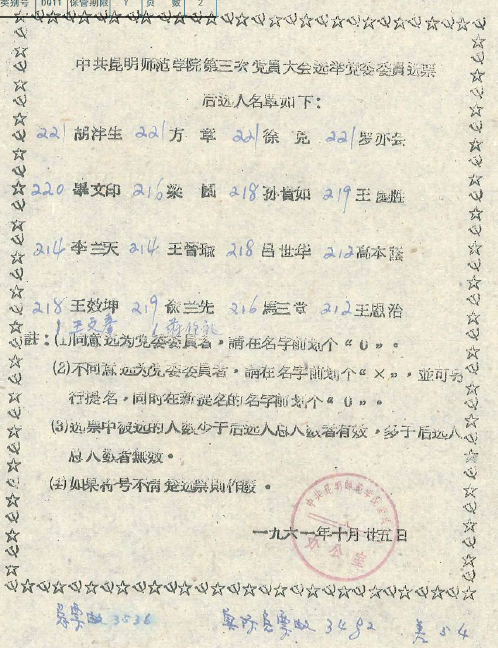 类别号 DQ11 保管期限 Y 页数 2
中共昆明师范学院第三次党員大会选举党委委員选票
后选人名单如下：
221 胡沣生 221 方章 221 徐 221 罗亦
220 毕文印 216 梁 218 孙 如 219 王
214 李兰天 214 王晋 218 吕世华 212 高本
218 王效坤 219 俞兰先 216 馬三 212 王恩治
1 王文 1
註：(1)同意选为党委委員者，請在名字前划个“0”。
(2)不同意选为党委委員者，請在名字前划个“×”，並可另
行提名，同时在新提名的名字前划个“0”。
(3)选票中被选的人数少于后选人总人数者有效，多于后选人
总人数者無效。
(4)如果符号不清楚选票則作廢。
一九六一年十月廿五日
办公室
总票数 3536 实际总票数 3482 差 54